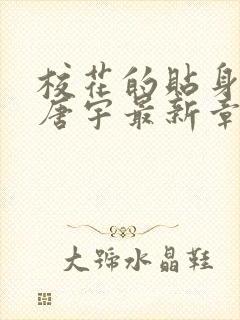 校花的贴身
唐宇最新章
大號水晶鞋